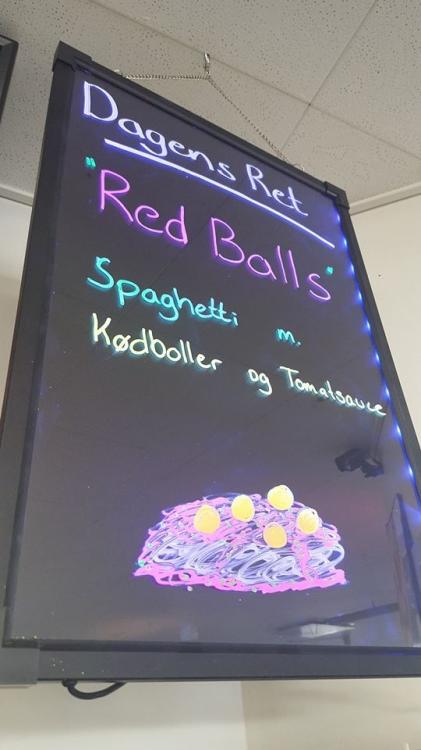 Dagens Ret
"Red Balls"
Spaghetti m.
Kødboller og Tomatsauce